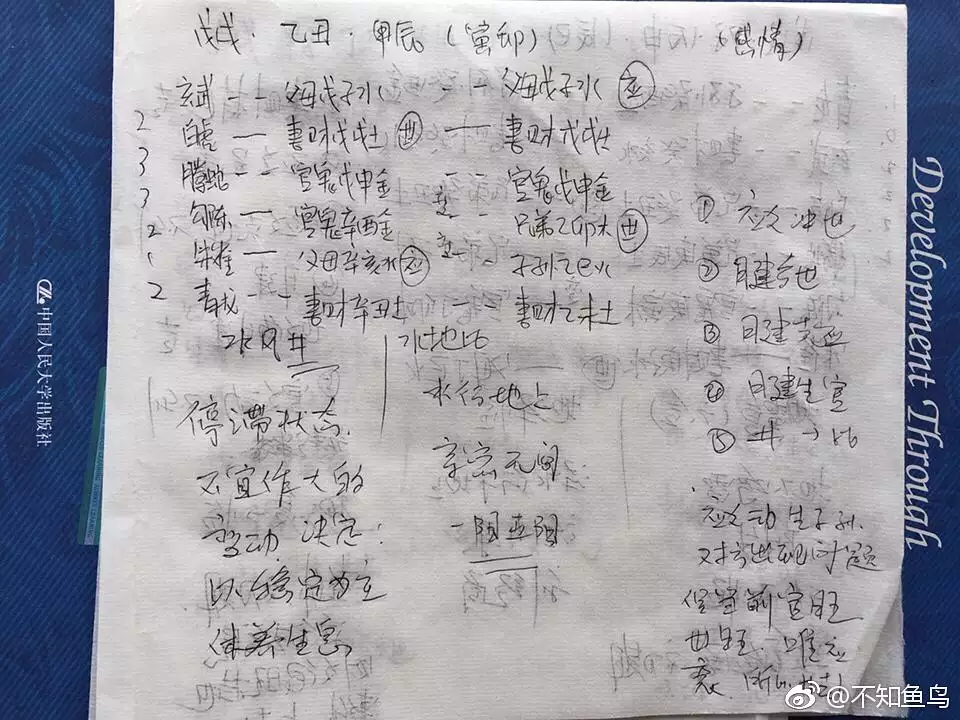 戊戌·乙丑·甲辰(寅卯) (感情)
玄武 -- 父母戊子水 -- 父母戊子水 应
2 白虎 — 妻财戊戌土 世 — 妻财戊戌土
3 腾蛇 -- 官鬼戊申金 -- 官鬼戊申金
3 勾陈 — 官鬼辛酉金 -- 兄弟乙卯木 世
2 朱雀 — 父母辛亥水 应 -- 子孙乙巳火
2 青龙 -- 妻财辛丑土 妻财乙未土
水风井
水地比
停滞状态
不宜作大的
变动 决定:
以稳定为主
休养生息
水行地上
亲密无间
一阳五阴
① 应爻冲世
② 日建合世
③ 月建克应
④ 月建生官
⑤ 井→比
应爻动生子孙
对方出现问题
官旺
世旺 唯应
衰
中国人民大学出版社
Development Through
@不知鱼鸟